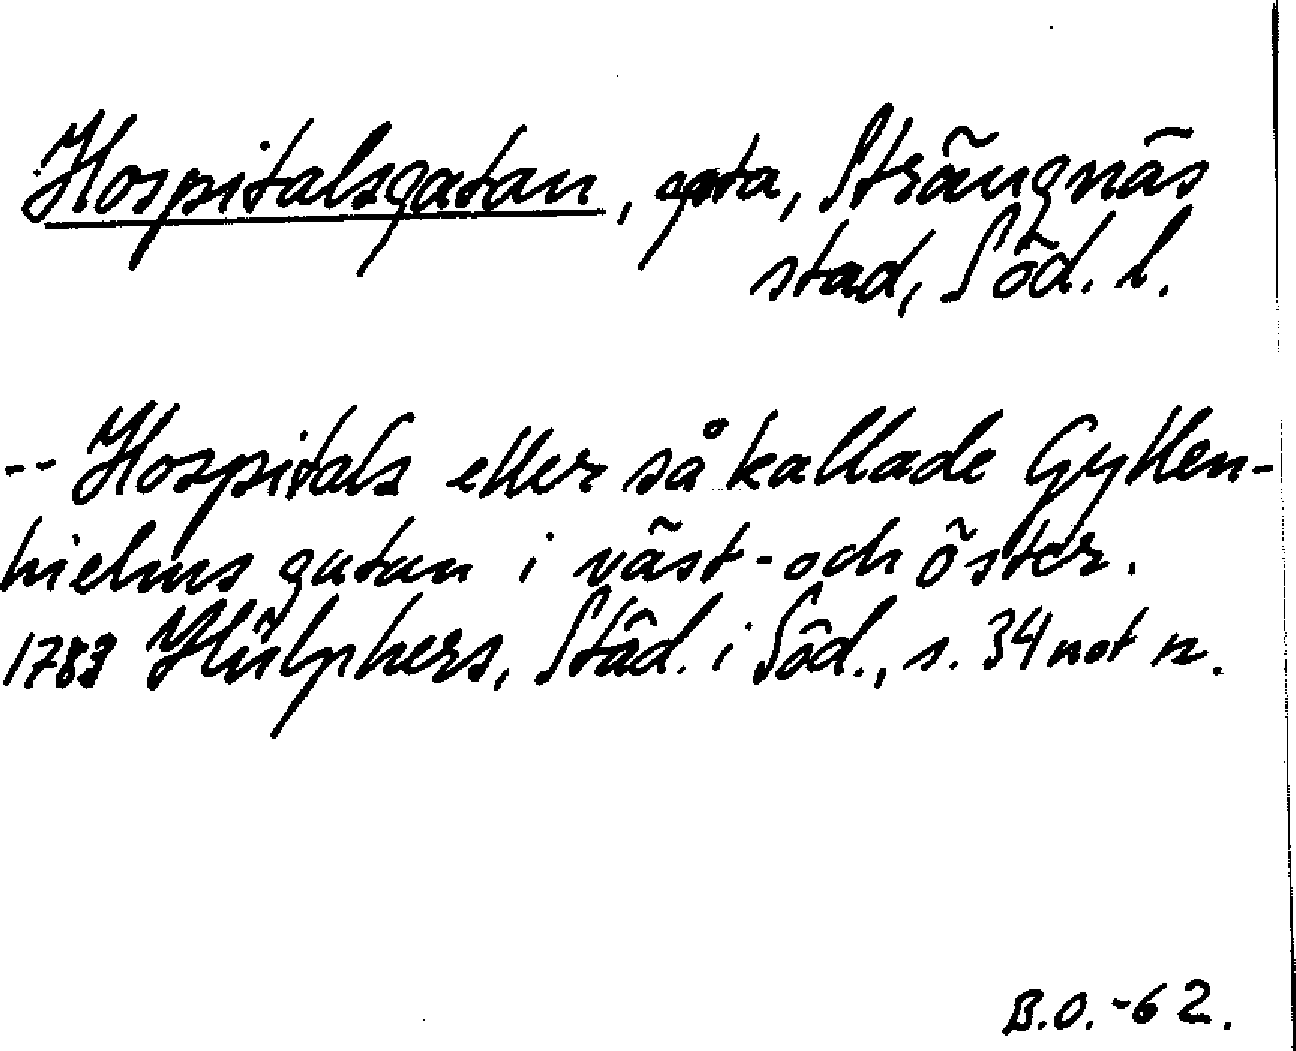 Hospitalsgatan, gata, Strängnäs
stad, Söd. l.
-- Hospitals eller så kallade Gyllen-
hielms gatan i väst- och öster.
1783 Hülphers, Städ. i Söd., s. 34 not n.
B.O. -62.